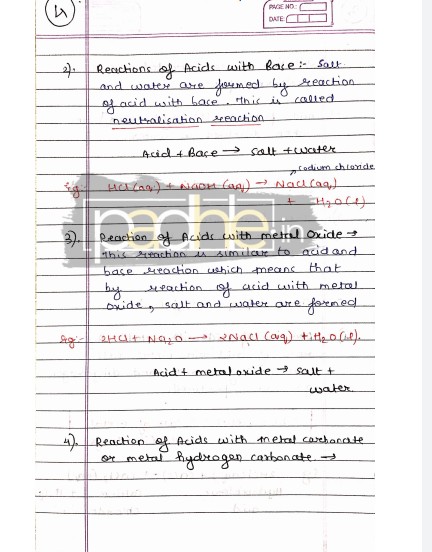 4
PAGE NO.:
DATE
2). Reactions of Acids with Base :- Salt
and water are formed by reaction
of acid with base. This is called
neutralisation reaction
Acid + Base → salt + water
sodium chloride
Eg:- HCl (aq.) + NaOH (aq) → NaCl (aq)
+ H2O (l)
padhle.in
3). Reaction of Acids with metal Oxide →
This reaction is similar to acid and
base reaction which means that
by reaction of acid with metal
oxide, salt and water are formed
Eg:- 2HCl + Na2O → 2NaCl (aq) + H2O (l).
Acid + metal oxide → salt +
water.
4). Reaction of Acids with metal carbonate
or metal hydrogen carbonate →